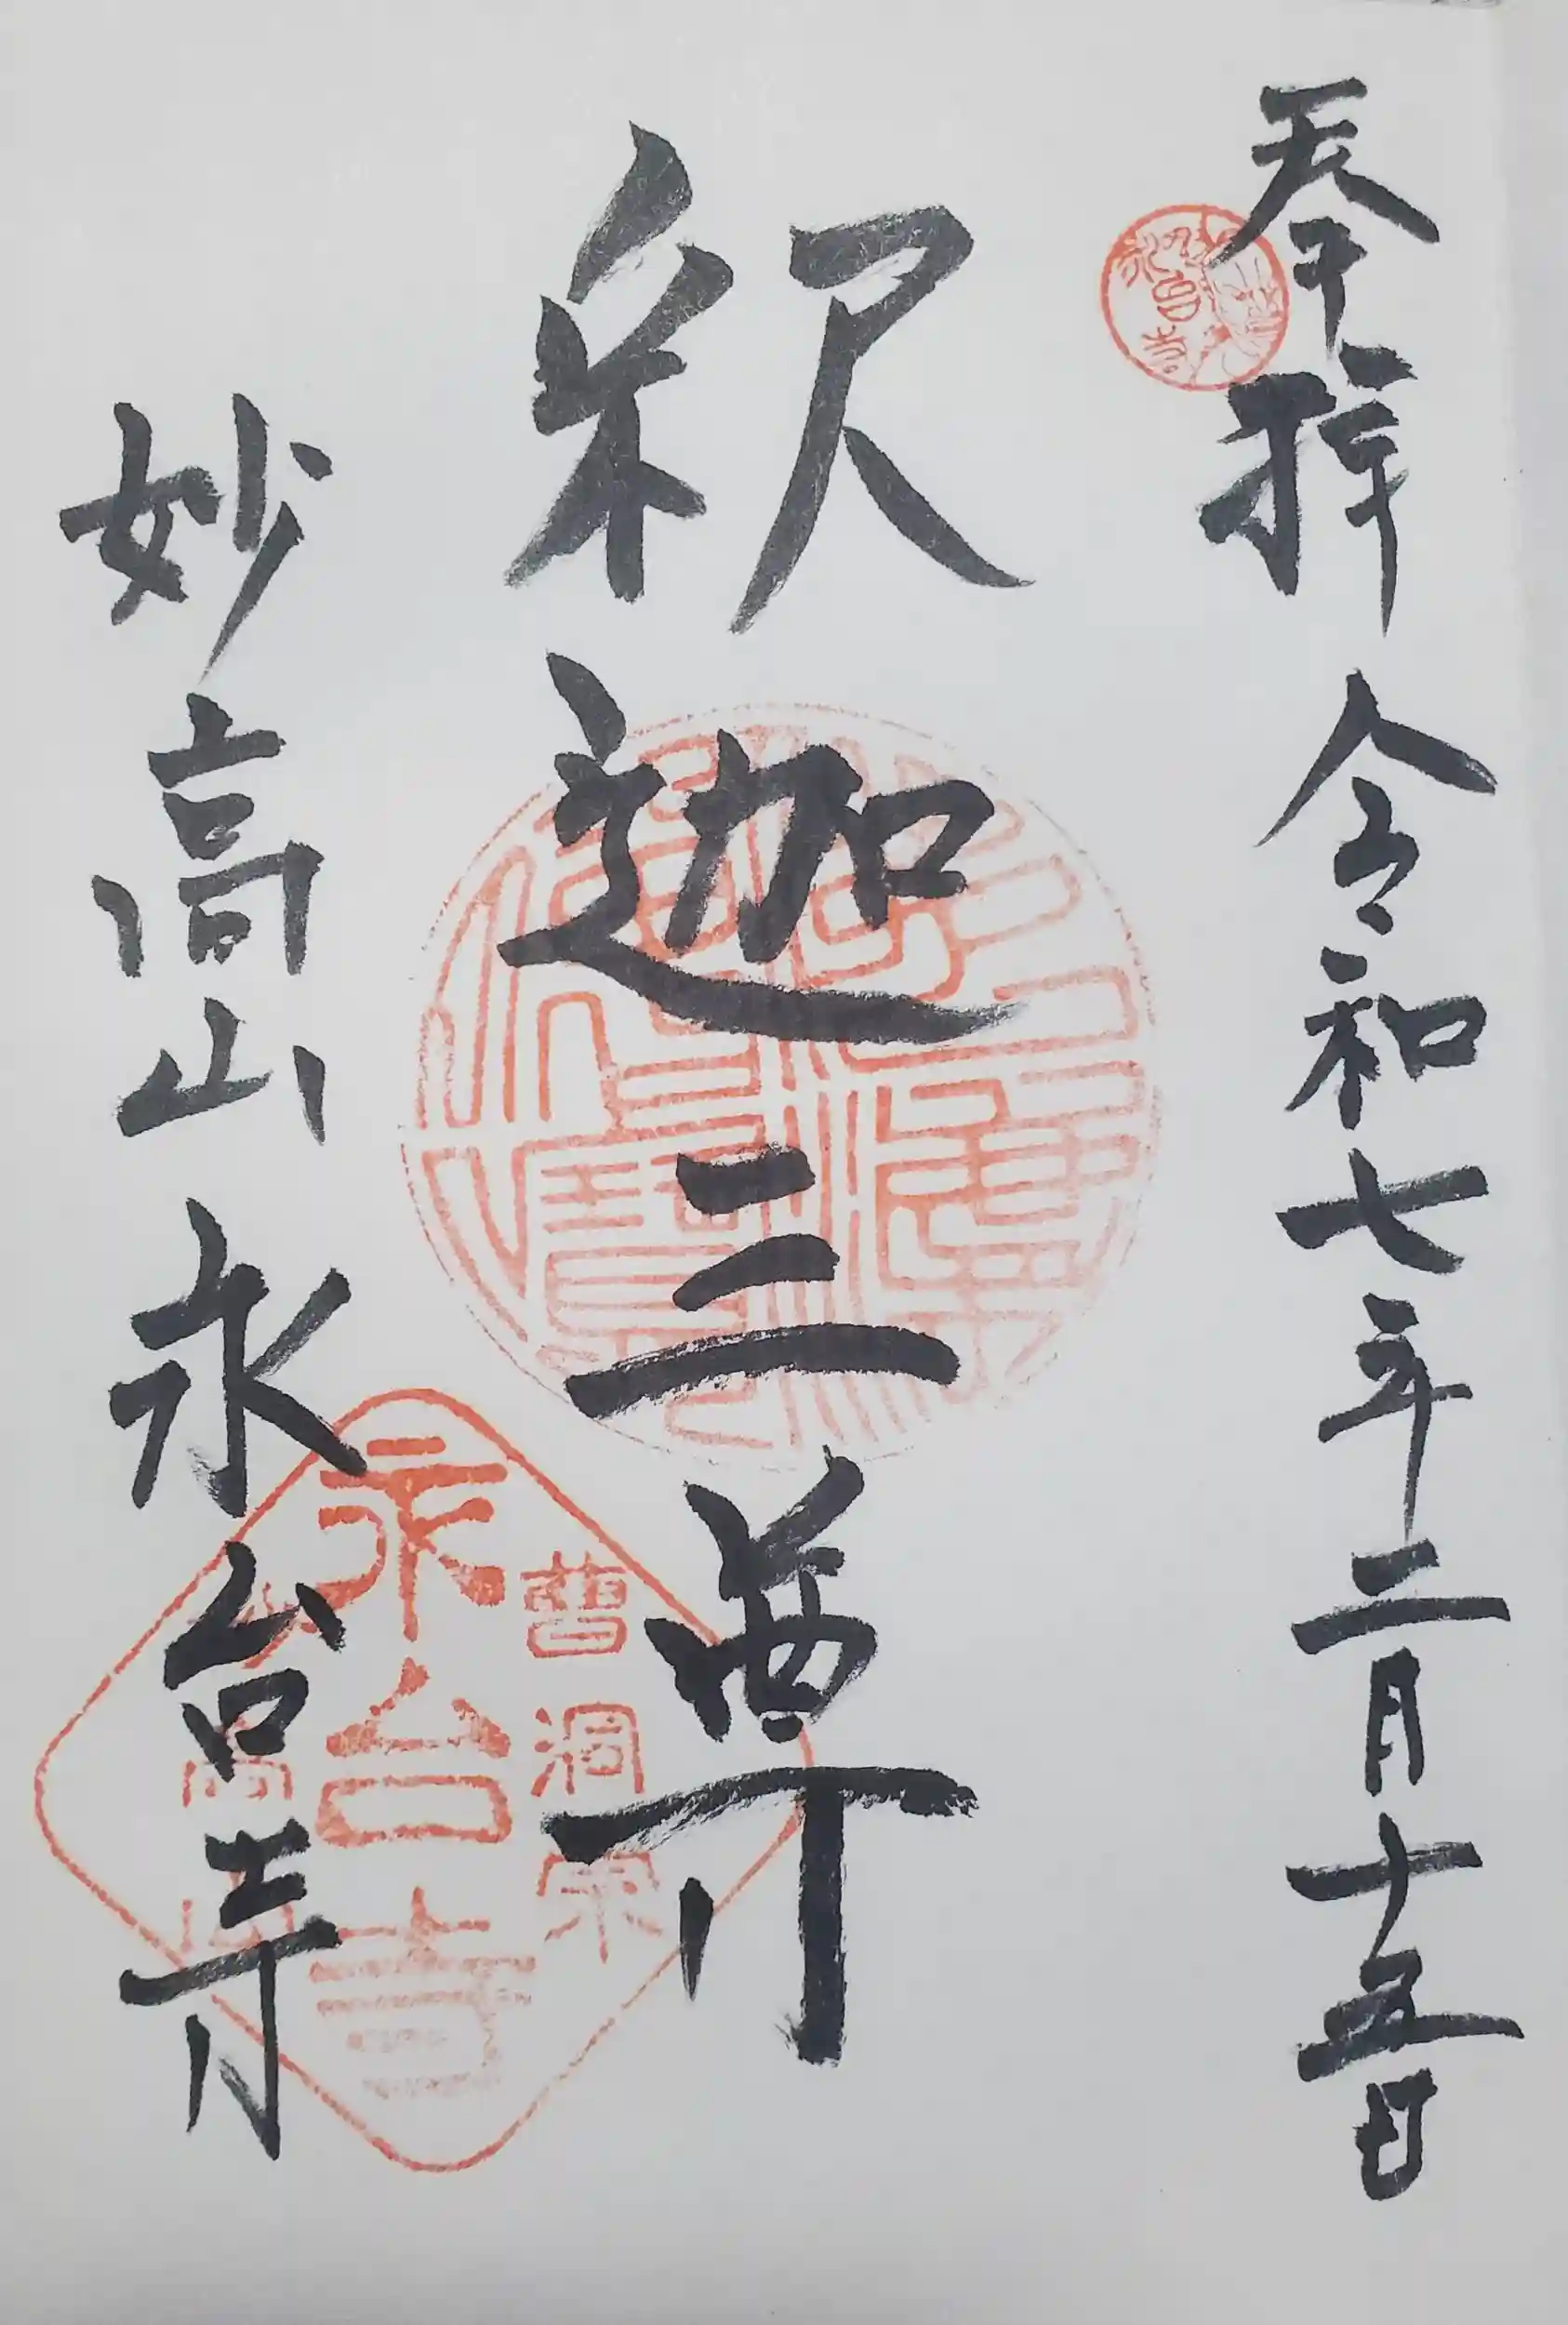 奉拝 令和七年二月十五日
釈迦三尊
妙高山 永台寺
佛法僧寳
曹洞宗
永台寺